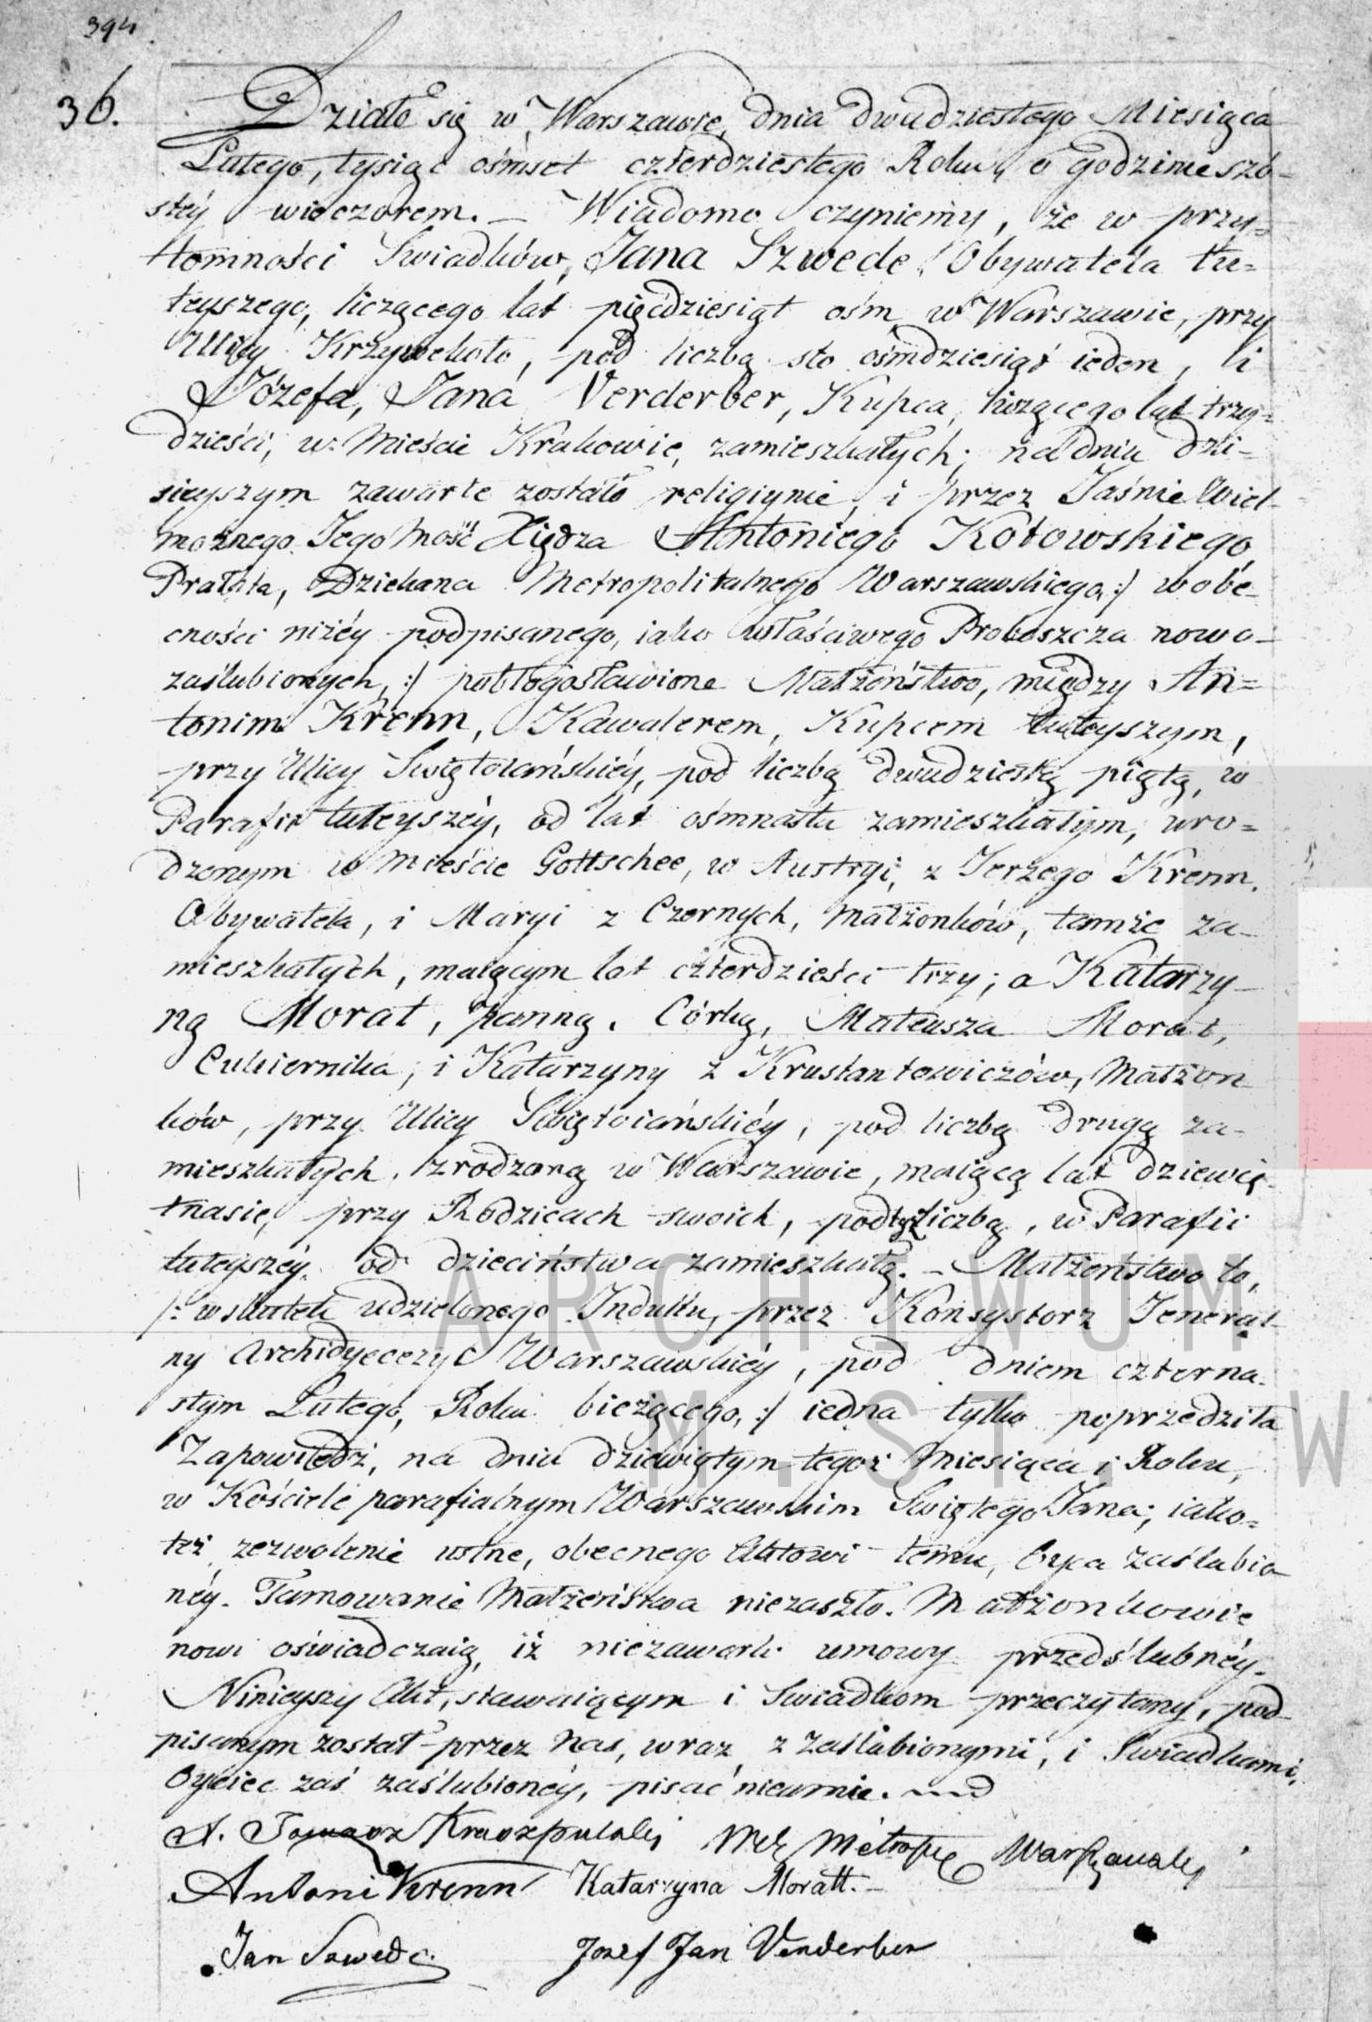 394
36.
Działo się w Warszawie, dnia dwudziestego Miesiąca
Lutego, tysiąc ośmset czterdziestego Roku, o godzinie szó-
stéy wieczorem. – Wiadomo czyniemy, że w przy=
tomności Swiadków, Jana Szwede, Obywatela tu=
teyszego, liczącego lat pięćdziesiąt ośm, w Warszawie, przy
Ulicy Krzywekoło, pod liczbą sto ośmdziesiąt ieden, i
Józefa, Jana Verderber, Kupca, liczącego lat trzy=
dzieści, w Mieście Krakowie, zamieszkałych; na dniu dzi-
sieyszym zawarte zostało religiynie, i przez Jaśnie Wiel-
możnego Jego Mość Xiędza Antoniego Kotowskiego
Prałata, Dziekana Metropolitalnego Warszawskiego, :/ w obe-
cności niżéy podpisanego, iako właściwego Proboszcza nowo-
zaślubionych, :/ pobłogosławione Małżeństwo, między An=
tonim Krenn, Kawalerem, Kupcem tuteyszym,
przy Ulicy Swiętoiańskiéy, pod liczbą dwudziestą piątą, w
Parafii tuteyszéy, od lat ośmnastu zamieszkałym, uro=
dzonym w Mieście Gottschee, w Austryi, z Jerzego Krenn,
Obywatela, i Maryi z Czernych, Małżonków, tamże za-
mieszkałych, maiącym lat czterdzieści trzy; a Katarzy-
ną Morat, Panną, Córką, Mateusza Morat,
Cukiernika, i Katarzyny z Krustantowiczów, Małżon
ków, przy Ulicy Swiętoiańskiéy, pod liczbą drugą za-
mieszkałych, zrodzoną w Warszawie, maiącą lat dziewię-
tnaście, przy Rodzicach swoich, pod tąż liczbą, w Parafii
tuteyszéy, od dzieciństwa zamieszkałą. – Małżeństwo to,
/: w skutek udzielonego Indultu, przez Konsystorz Jeneral-
ny Archidyecezyi Warszawskiéy, pod dniem czterna-
stym Lutego, Roku bieżącego, :/ iedna tylko poprzedziła
Zapowiedź, na dniu dziewiątym tegoż Miesiąca i Roku,
w Kościele parafialnym Warszawskim Swiętego Jana; iako=
też zezwolenie ustne, obecnego Aktowi temu, Oyca zaślubio
néy. Tamowanie Małżeństwa niezaszło. Małżonkowie
nowi oświadczaią, iż niezawarli umowy przedślubnéy.
Ninieyszy Akt, stawaiącym i Swiadkom przeczytany, pod-
pisanym został przez Nas, wraz z zaślubionymi, i Swiadkami,
Oyciec zaś zaślubionéy, pisać nieumie.
X. Tomasz
Antoni Krenn Katarzyna Moratt. –
Jan Szwede. Jozef Jan Verderber
ARCHIWUM
M.ST. W